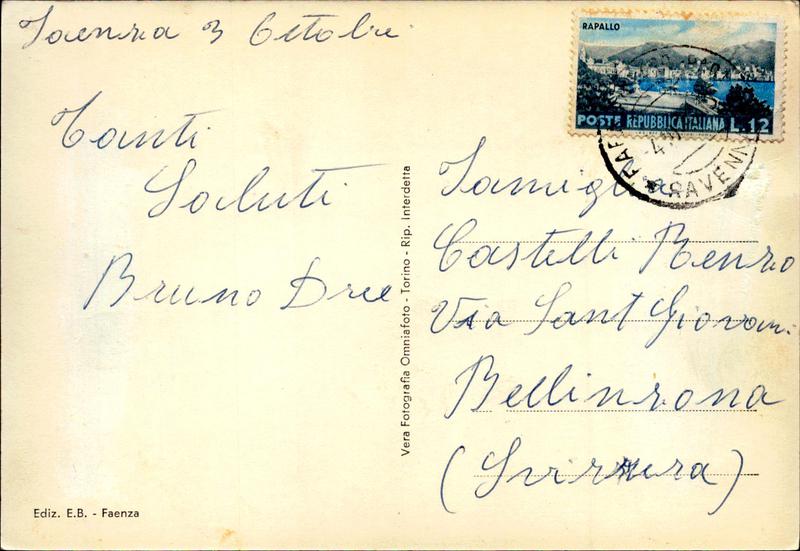 Faenza 3 Ottobre
Tanti
Saluti
Bruno Dree
RAPALLO
POSTE REPUBBLICA ITALIANA L.12
RAVENNA
Famiglia
Castelli Renzo
Via Sant Giovani
Bellinzona
(Svizzera)
Vera Fotografia Omniafoto - Torino - Rip. Interdetta
Ediz. E.B. - Faenza